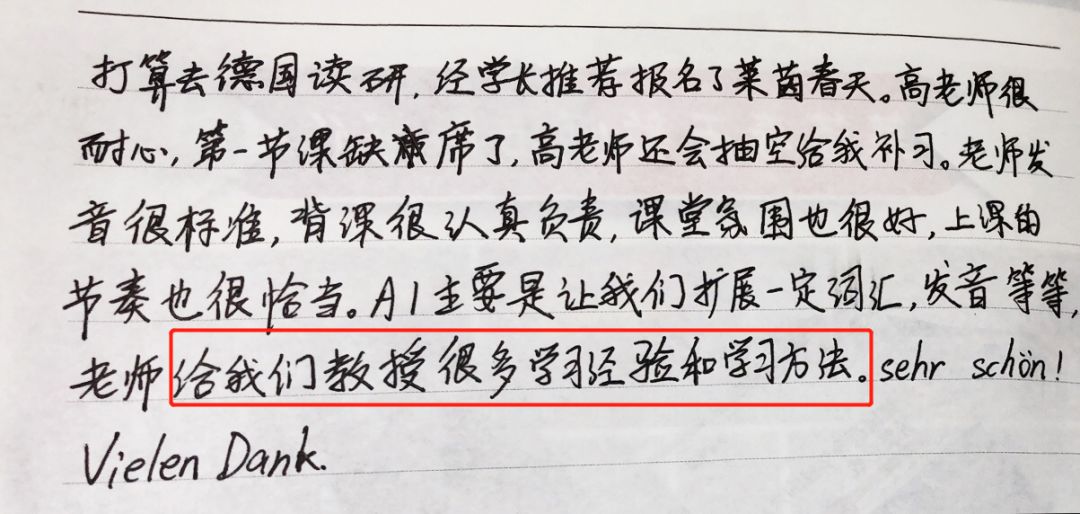 打算去德国读研,经学长推荐报名了莱茵春天。高老师很
耐心,第一节课缺席了,高老师还会抽空给我补习。老师发
音很标准,背课很认真负责,课堂氛围也很好,上课的
节奏也很恰当。A1主要是让我们扩展一定词汇,发音等等,
老师给我们教授很多学习经验和学习方法。sehr schön!
Vielen Dank.